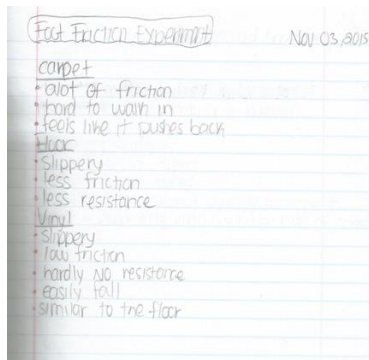 Foot Friction Experiment
Nov 03, 2015
carpet
• alot of friction
• hard to walk in
• feels like it pushes back
Floor
• Slippery
• less friction
• less resistance
Vinyl
• Slippery
• low friction
• hardly NO resistance
• easily fall
• similar to the floor